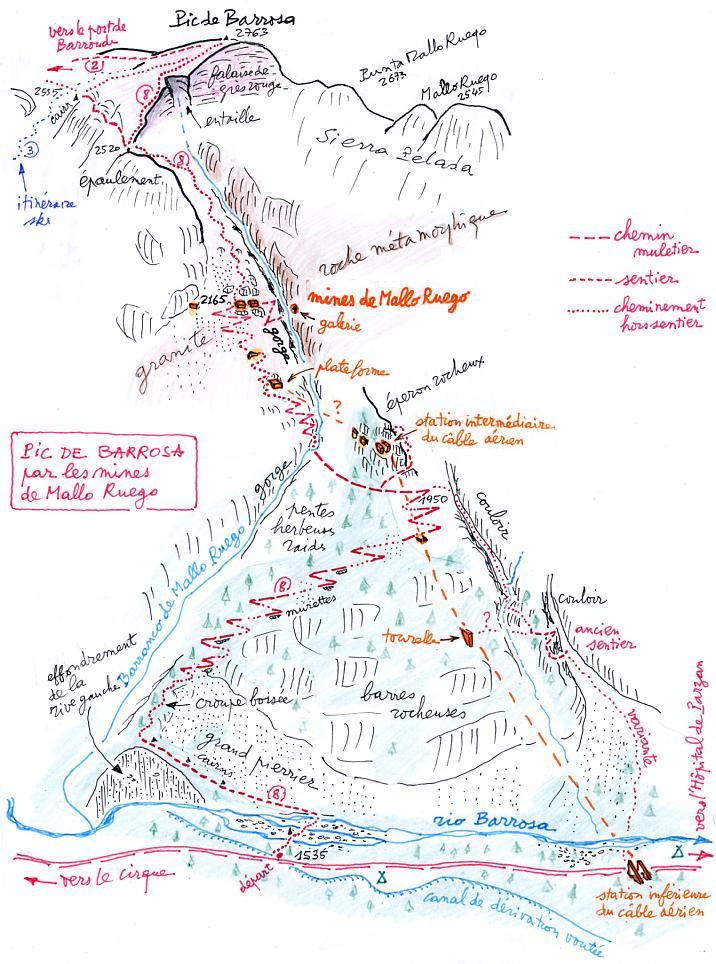 vers le port de
Barroude
Pic de Barrosa
2763
2
falaise de
grès rouge
Punta Mallo Ruego
2673
Mallo Ruego
2545
2555
cairn
8
entaille
Sierra Pelada
3
2520
8
épaulement
itinéraire
ski
roche métamorphique
chemin
muletier
sentier
cheminement
hors sentier
2165
mines de Mallo Ruego
galerie
gorge
granite
plateforme
?
éperon rocheux
station intermédiaire
du câble aérien
PIC DE BARROSA
par les mines
de Mallo Ruego
gorge
1950
couloir
pentes
herbeuses
raides
Barranco de Mallo Ruego
8
murettes
couloir
?
tourelle
ancien
sentier
effondrement
de la
rive gauche
croupe boisée
barres
rocheuses
variante
vers l'Hôpital de Parzan
grand pierrier
cairns
8
rio Barrosa
1535
départ
vers le cirque
canal de dérivation voûtée
station inférieure
du câble aérien